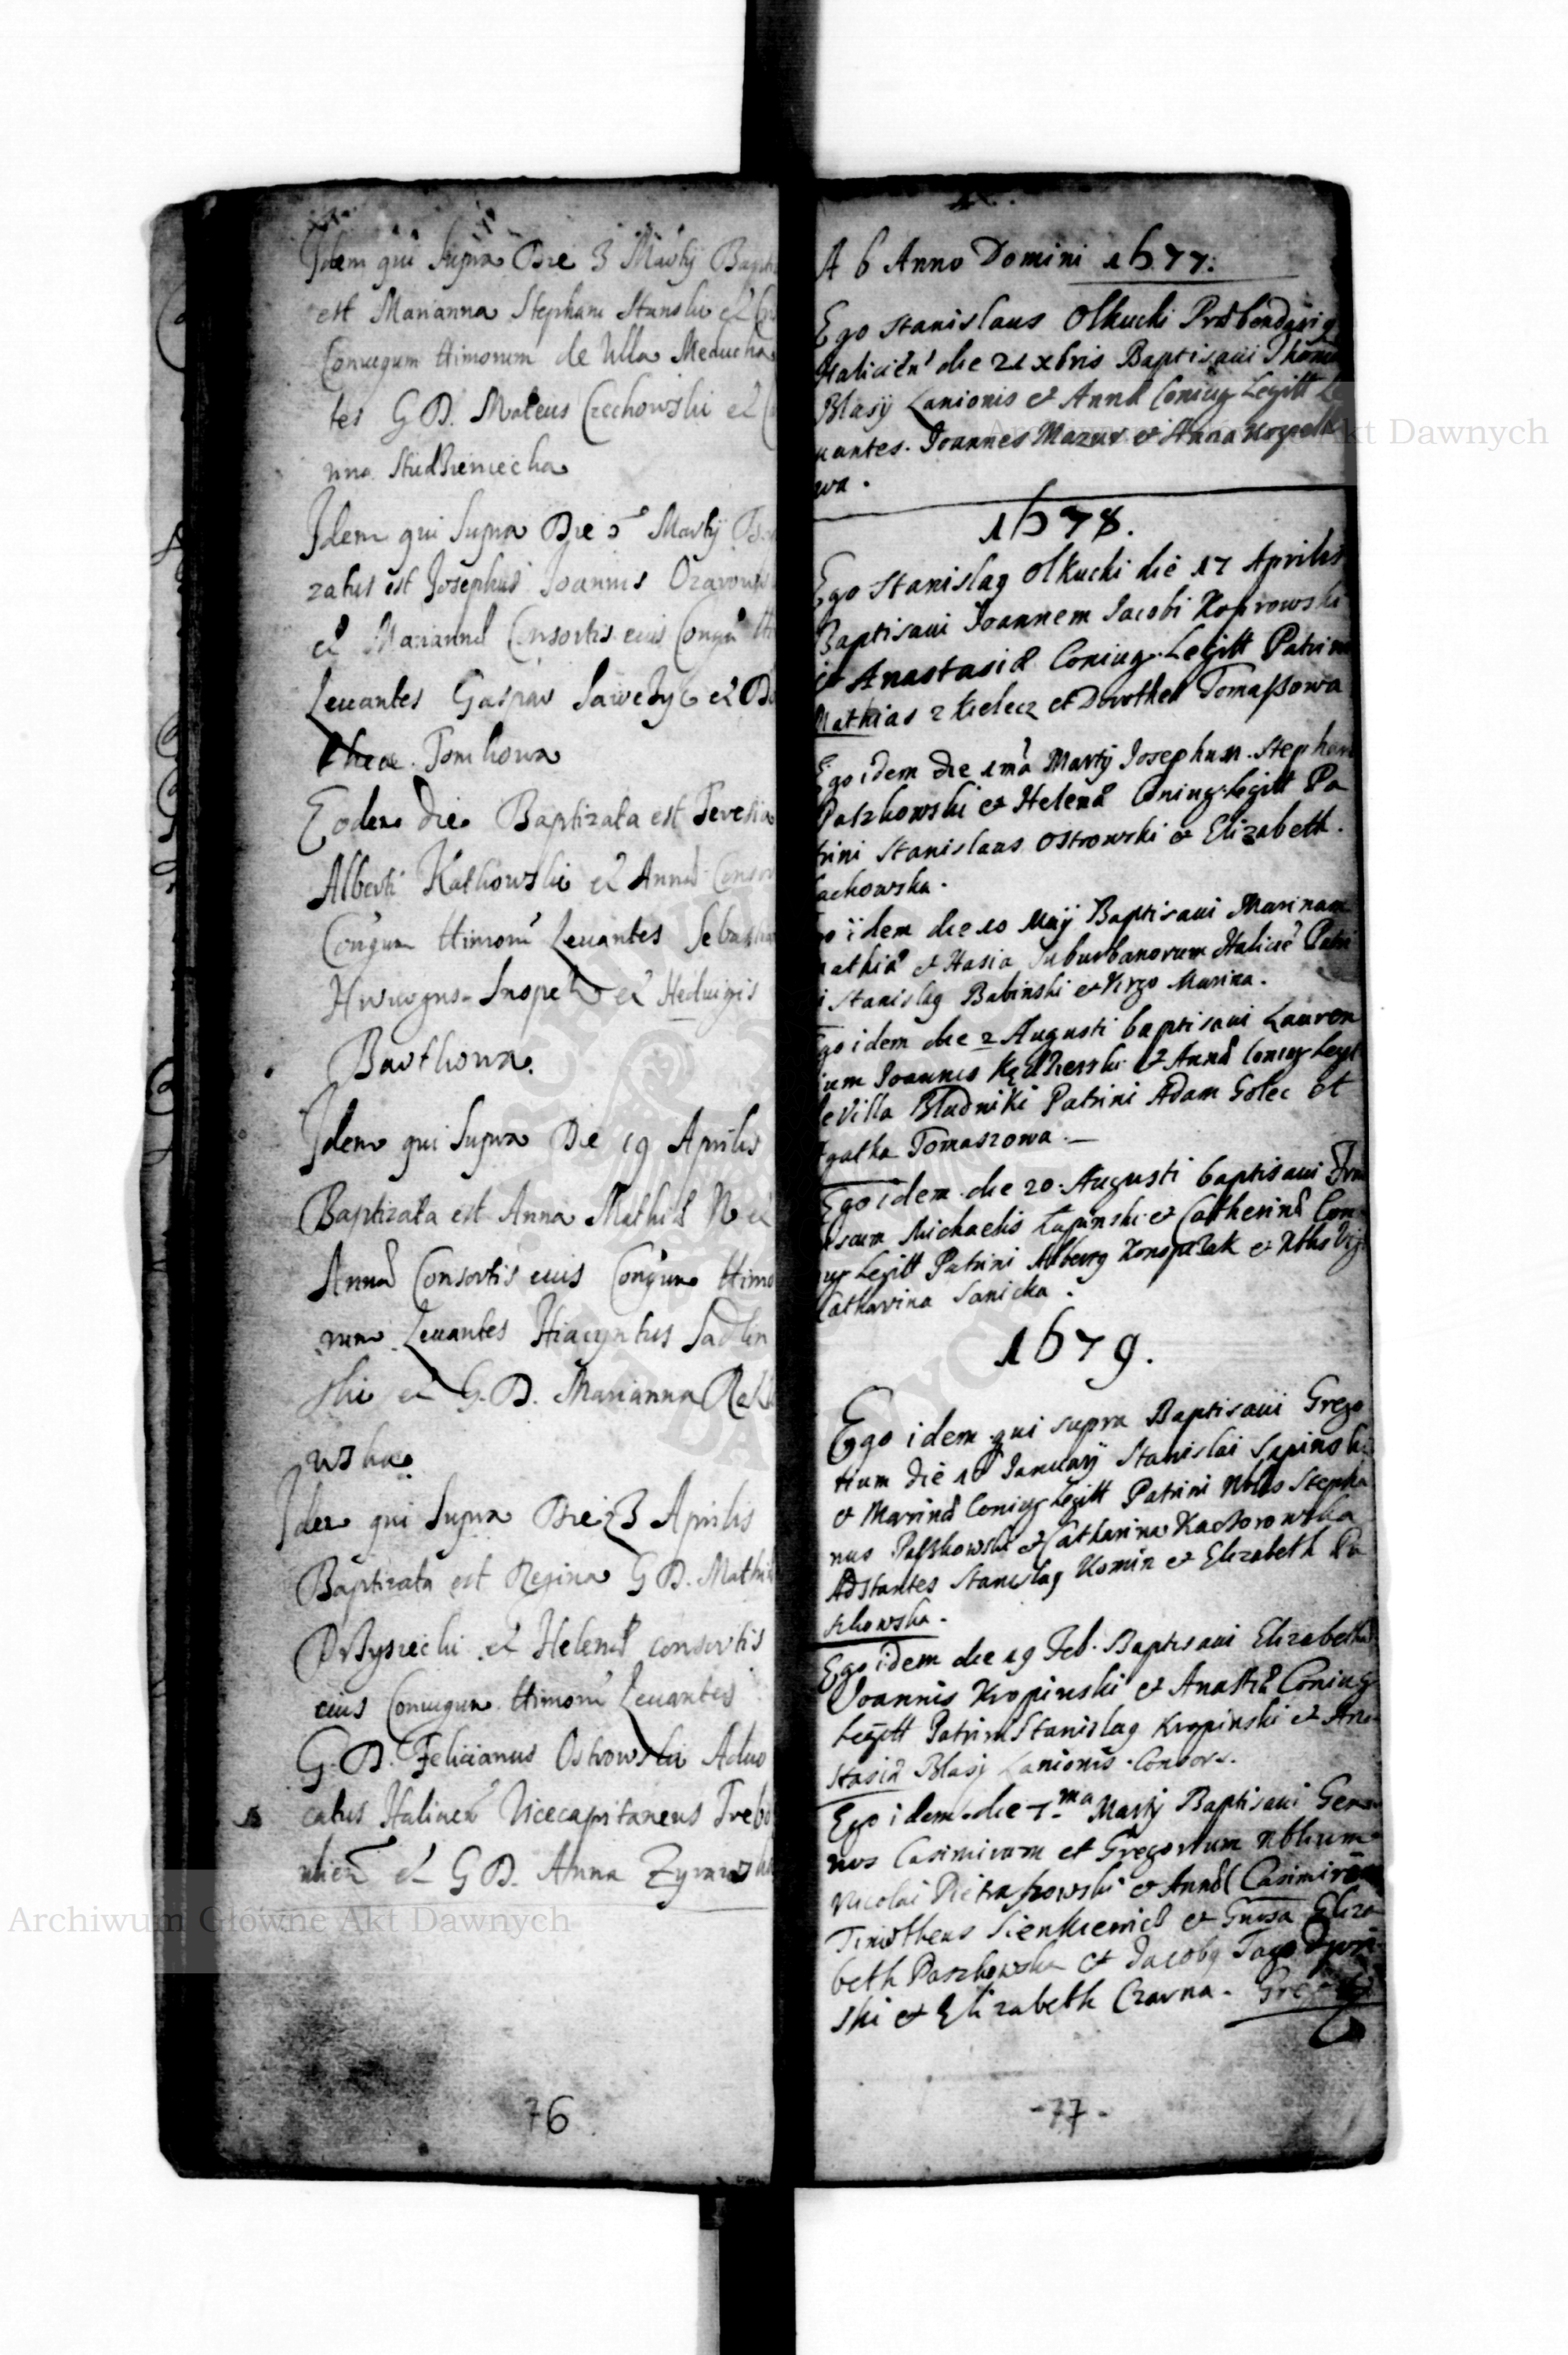 Idem qui supra Die 3 Martÿ Bapti
est Marianna Stephani Stanski et
Coniugum ttimorum de Villa Meducha
tes G D. Mateus Czechowski et
nna Studzieniecka
Idem qui supra Die 5 Martÿ
zatus est Josephus Joannis Ozarows
et Mariannæ Consortis eius Congu
Leuantes Gaspar Sawczyc et Do
thea Tomkowa
Eodem die Baptizata est Teresia
Alberti Katkowski et Annæ Consor
Congum ttimorū Leuantes Sebastian
Inopek et Heduigis
Barthowa.
Idem qui supra Die 19 Aprilis
Baptizata est Anna Mathiæ N et
Annæ Consortis eius Congum ttimo
rum Leuantes Hiacyntus Sadlin
ski et G. D. Marianna
wska
Idem qui supra Die 23 Aprilis
Baptizata est Regina G D. Mathiæ
et Helenæ consortis
eius Coniugum ttimorū Leuantes
G. D. Felicianus Ostrowski Aduo
catus Halicen Vicecapitaneus Trebo
et G D. Anna
76
A b Anno Domini 1677.
Ego Stanislaus Olkucki Præbendariq
Halicien die 21 xbris Baptisaui Thom
Blasÿ Lanionis et Annæ Coniug Legitt Le
uantes. Joannes Mazur et Anna
wa.
1678.
Ego Stanislaq Olkucki die 17 Aprilis
Baptisaui Joannem Jacobi Koprowski
et Anastasiæ Coniug. Legitt Patrini
Mathias z Kielcz et Dorothea Tomaszowa
Ego idem die 1ma Martÿ Josephum Stephan
Paszkowski et Helenæ Coniug. Legitt Pa
trini Stanislaus Ostrowski et Elizabeth.
achowska.
idem die 10 Maÿ Baptisaui Marinam
athiæ et Hasia Suburbanorum Halicie Patri
i Stanislaq Babinski et Virgo Marina.
go idem die 2 Augusti baptisaui Lauren
ium Joannis et Annæ Coniug Legit
e Villa Bludniki Patrini Adam Golec et
gatha Tomaszowa.
Ego idem die 20 Augusti baptisaui Fran
iscum Michaelis Łupinski et Catherinæ Con
ug Legitt Patrini Albertq Konopczak et Nblis Vi
Catharina Sanicka.
1679.
Ego idem qui supra Baptisaui Grego
rium die 16 Januarÿ Stanislai Sapinski
et Marinæ Coniug Legitt Patrini Nblis Stepha
nus Paszkowski et Catharina Kaczorowska
Adstantes Stanislaq Komin et Elizabeth Pa
szkowska.
Ego idem die 19 Feb. Baptisaui Elizabetham
Joannis Kropinski et Anastæ Coniug
Legitt Patrini Stanislaq Kropinski et Ana
stasia Blasÿ Lanionis Consors.
Ego idem die 7ma Martÿ Baptisaui Gemi
nos Casimirum et Gregorium Nblium
Nicolai Pietraszowski et Annæ (Casimirum
Timotheus Sienkiewicz et Gnosa Eliza
beth Paszkowska et Jacobq Jagodzyn
ski et Elizabeth Czarna.
-77-
Archiwum Główne Akt Dawnych